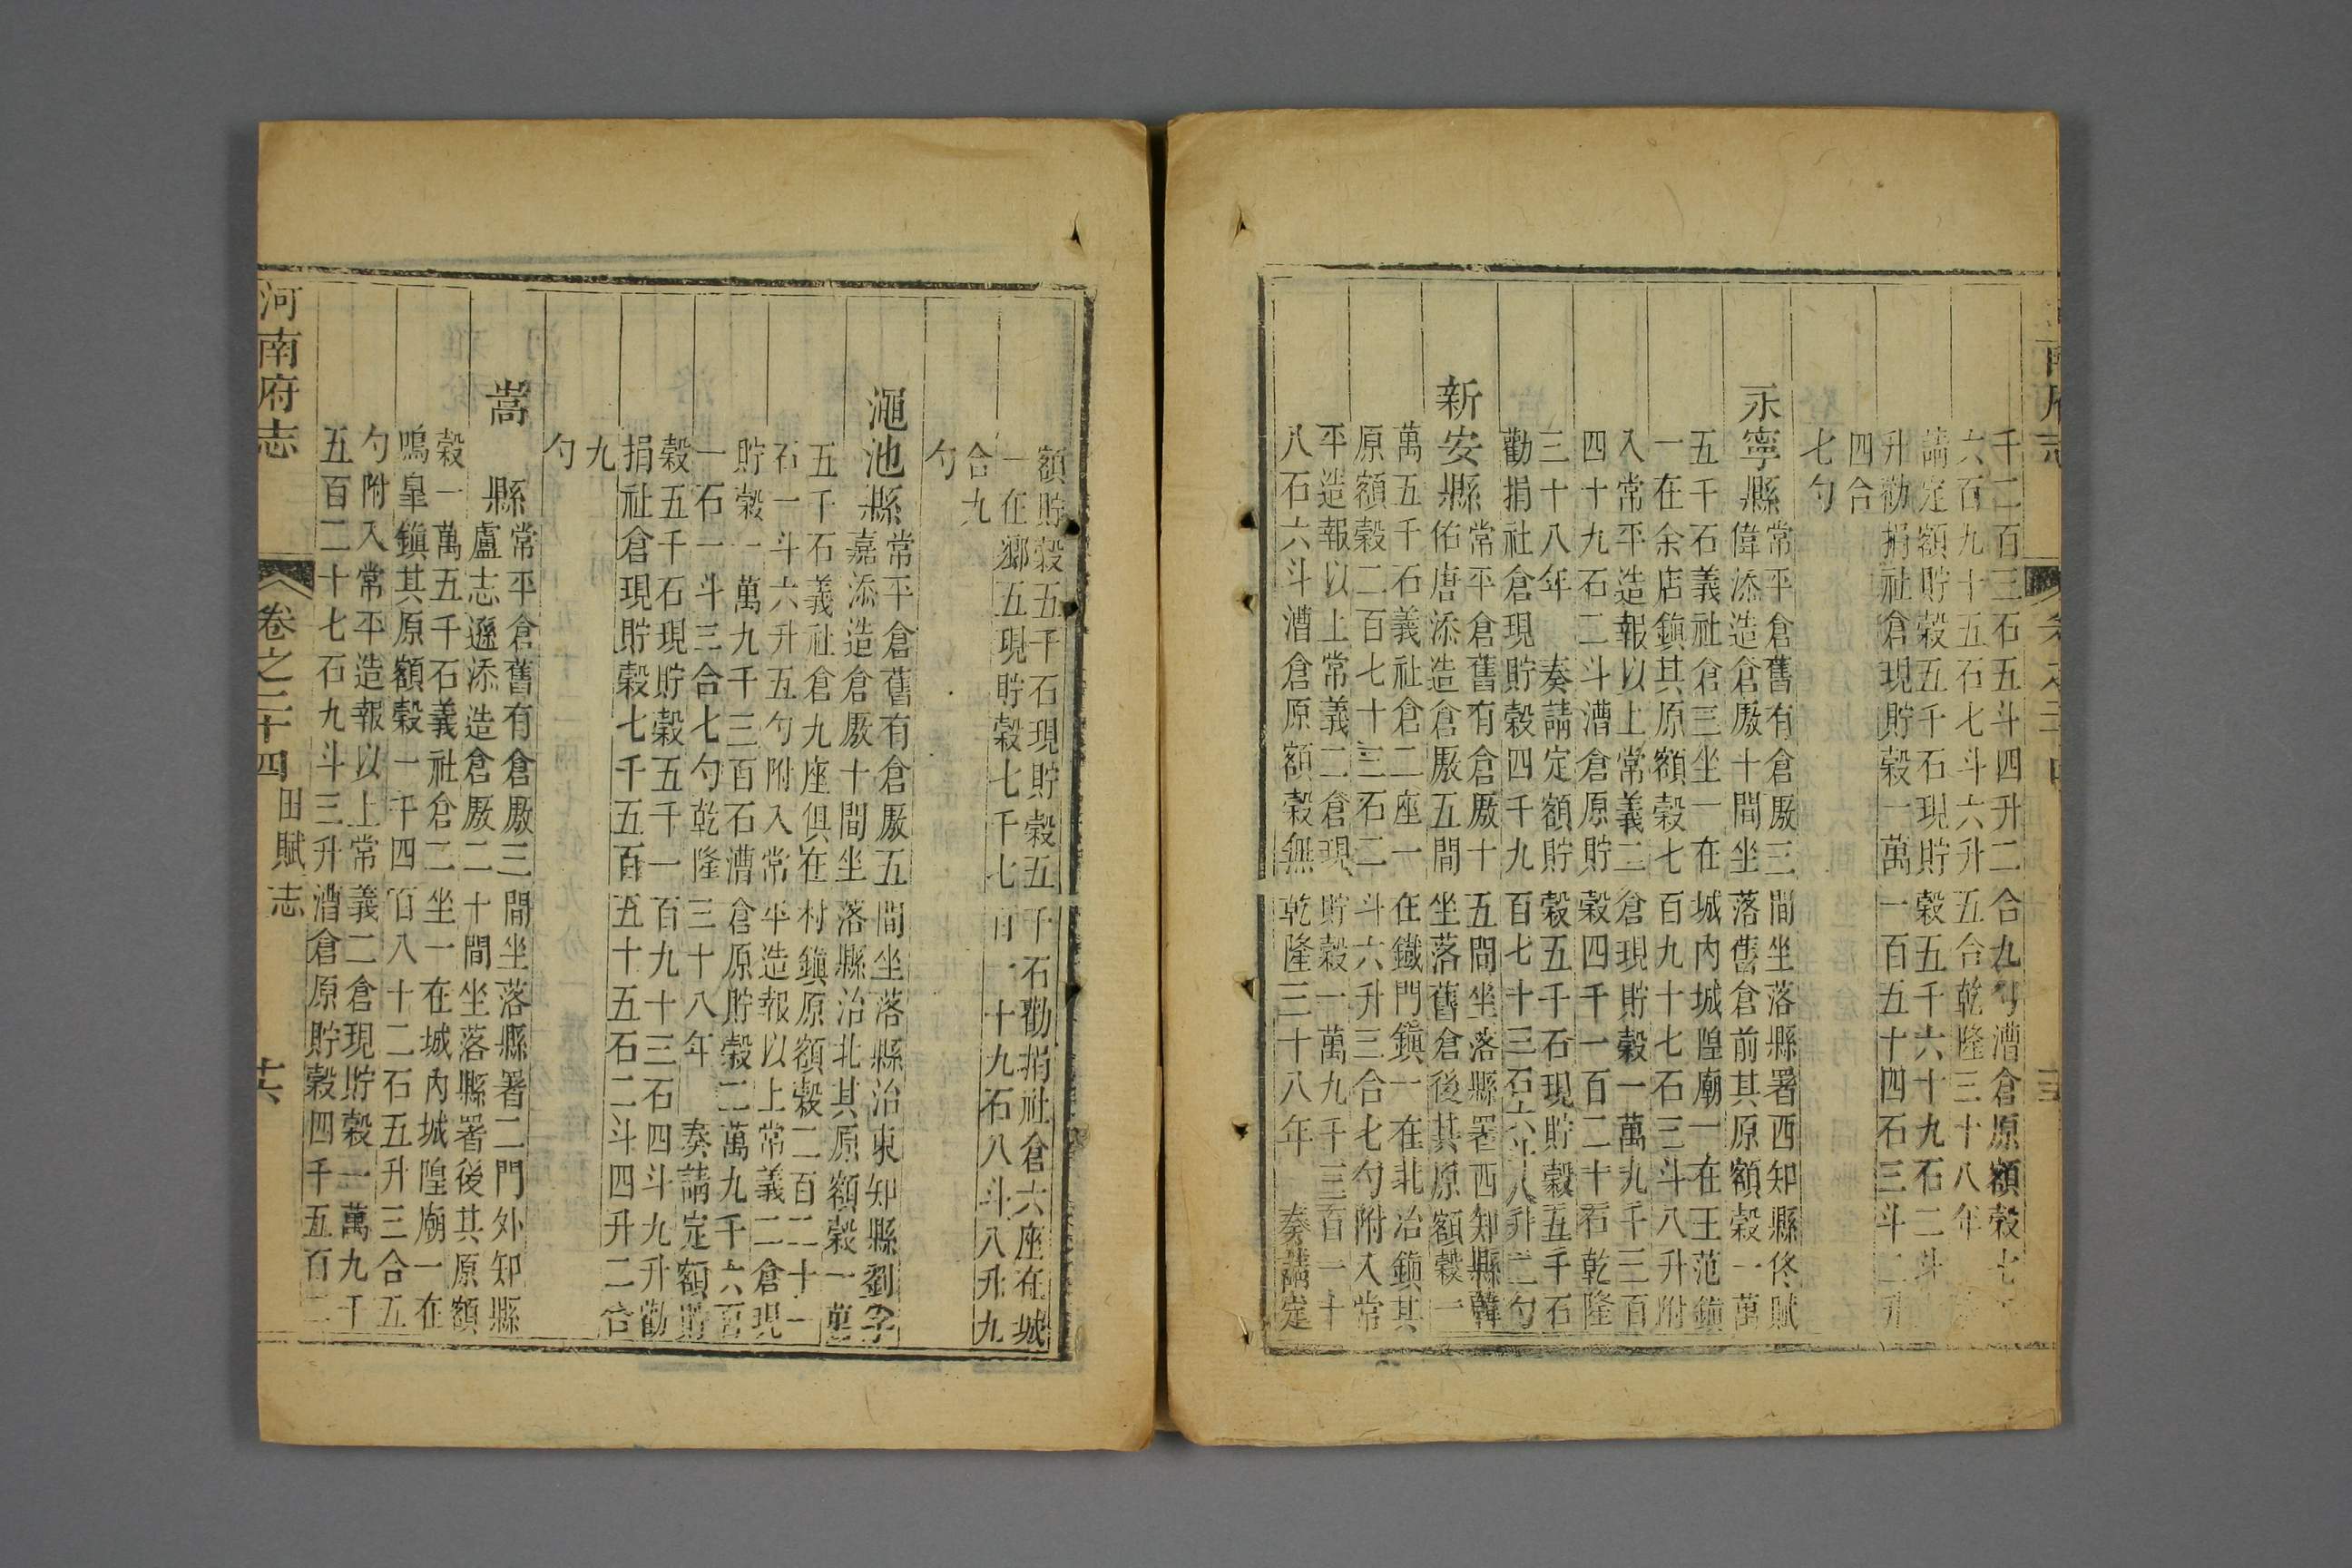 千二百三石五斗四升二合九勺漕倉原額穀七
六百九十五石七斗六升五合乾隆三十八年
請定額貯穀五千石現貯穀五千六十九石二斗
升勸捐社倉現貯穀一萬一百五十四石三斗二升
四合
七勺
永寧縣常平倉舊有倉廒三間坐落縣署西知縣佟賦
偉添造倉廒十間坐落舊倉前其原額穀一萬
五千石義社倉三坐一在城內城隍廟一在王范鎮
一在余店鎮其原額穀七百九十七石三斗八升附
入常平造報以上常義二倉現貯穀一萬九千三百
四十九石二斗漕倉原貯穀四千一百二十石乾隆
三十八年 奏請定額貯穀五千石現貯穀五千石
勸捐社倉現貯穀四千九百七十三石六斗八升二勺
新安縣常平倉舊有倉廒十五間坐落縣署西知縣韓
佑唐添造倉廒五間坐落舊倉後其原額穀一
萬五千石義社倉二座一在鐵門鎮一在北冶鎮其
原額穀二百七十三石二斗六升三合七勺附入常
平造報以上常義二倉現貯穀一萬九千三百一十
八石六斗漕倉原額穀無乾隆三十八年 奏請定
額貯穀五千石現貯穀五千石勸捐社倉六座在城
一在鄉五現貯穀七千七百一十九石八斗八升九
合九
勺
澠池縣常平倉舊有倉廒五間坐落縣治東知縣劉字
嘉添造倉廒十間坐落縣治北其原額穀一萬
五千石義社倉九座俱在村鎮原額穀二百二十一
石一斗六升五勺附入常平造報以上常義二倉現
貯穀一萬九千三百石漕倉原貯穀二萬九千六百
一石一斗三合七勺乾隆三十八年 奏請定額貯
穀五千石現貯穀五千一百九十三石四斗九升勸
捐社倉現貯穀七千五百五十五石二斗四升二合
九
勺
嵩縣常平倉舊有倉廒三間坐落縣署二門外知縣
盧志遜添造倉廒二十間坐落縣署後其原額
穀一萬五千石義社倉二坐一在城內城隍廟一在
鳴皋鎮其原額穀一千四百八十二石五升三合五
勺附入常平造報以上常義二倉現貯穀一萬九千
五百二十七石九斗三升漕倉原貯穀四千五百二
河南府志 卷之二十四 田賦志 共